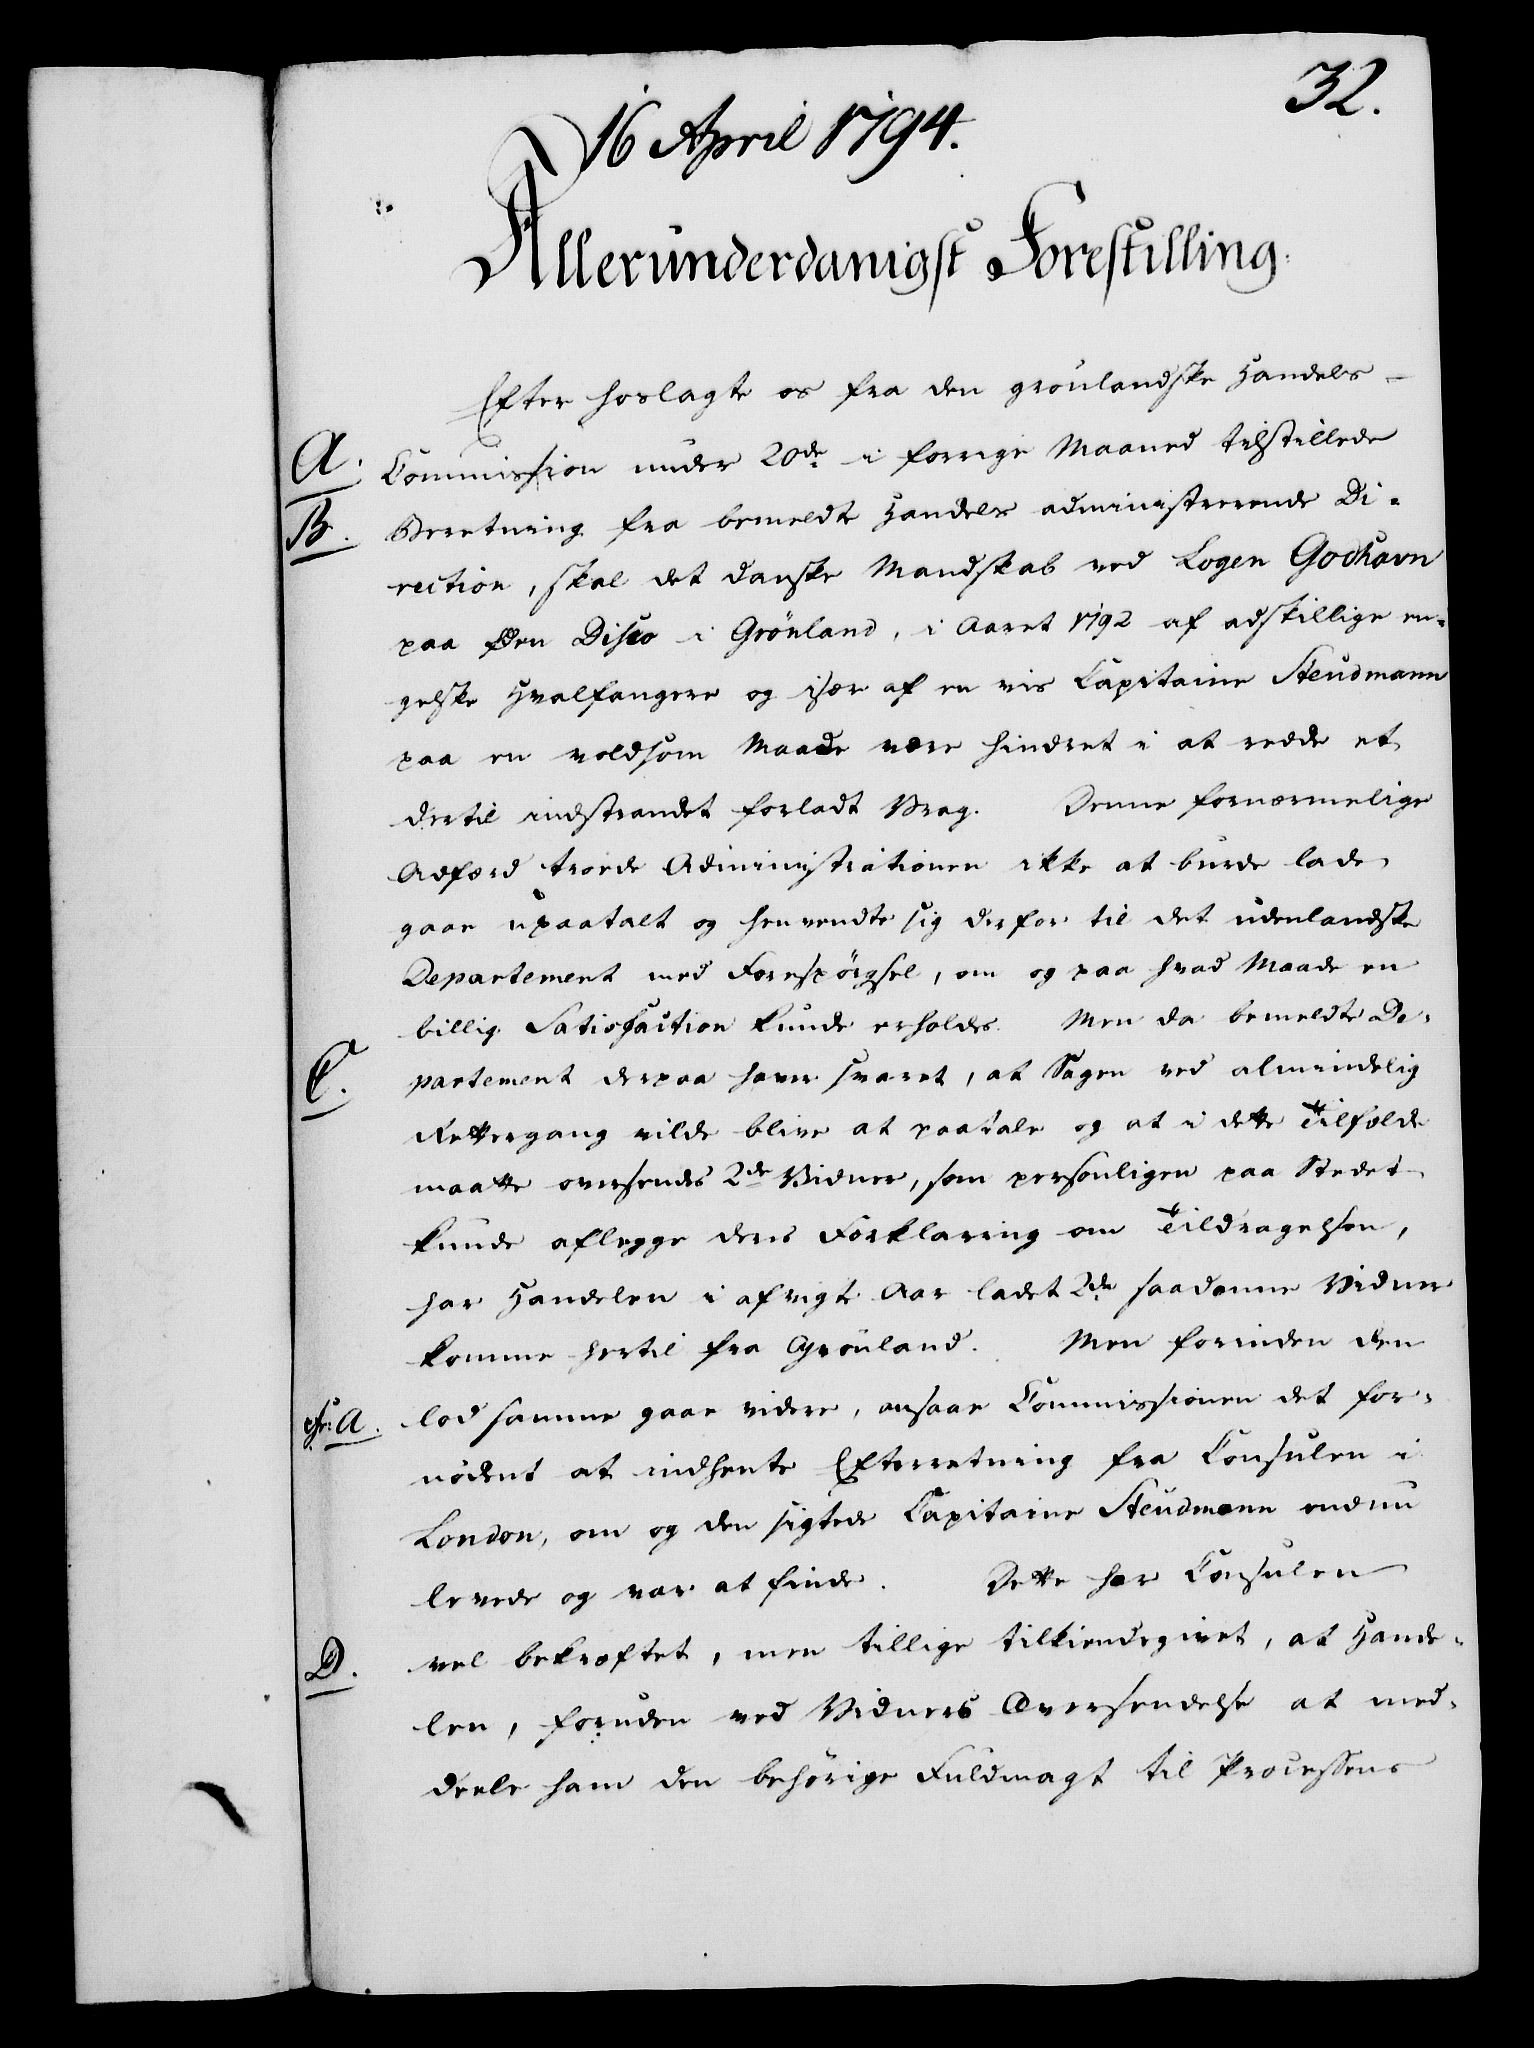 32.
16 April 1794.
Allerunderdanigst Forestilling.
Efter hoslagte os fra den grønlandske Handels-
A. Commission under 20de i forrige Maaned tilstillede
B. Beretning fra bemeldte Handels administrerende Di-
rection, skal det danske Mandskab ved Logen Godhavn
paa Øen Disco i Grönland, i Aaret 1792 af adskillige en-
gelske Hvalfangere og især af en vis Capitaine Steudmann
paa en voldsom Maade være hindret i at redde et
dertil indstrandet forladt Vrag. Denne fornærmelige
Adfærd troede Administrationen ikke at burde lade
gaae upaatalt og henvendte sig derfor til det udenlandske
Departement med Forespörgsel, om og paa hvad Maade en
billig Satisfaction kunde erholdes. Men da bemeldte De-
C. partement derpaa haver svaret, at Sagen ved almindelig
Rettergang vilde blive at paatale og at i dette Tilfælde
maatte oversendes 2de Vidner, som personligen paa Stedet
kunde aflegge deres Forklaring om Tildragelsen,
har Handelen i afvigte Aar ladet 2de saadanne Vidner
komme hertil fra Grönland. Men forinden den
cfr: A. lod samme gaae videre, ansaae Commissionen det for-
nödent at indhente Efterretning fra Consulen i
London, om og den sigtede Capitaine Steudmann endnu
levede og var at finde. Dette har Consulen
D. vel bekræftet, men tillige tilkiendegivet, at Hande-
len, foruden ved Vidners Oversendelse at med-
deele ham den behörige Fuldmagt til Processens